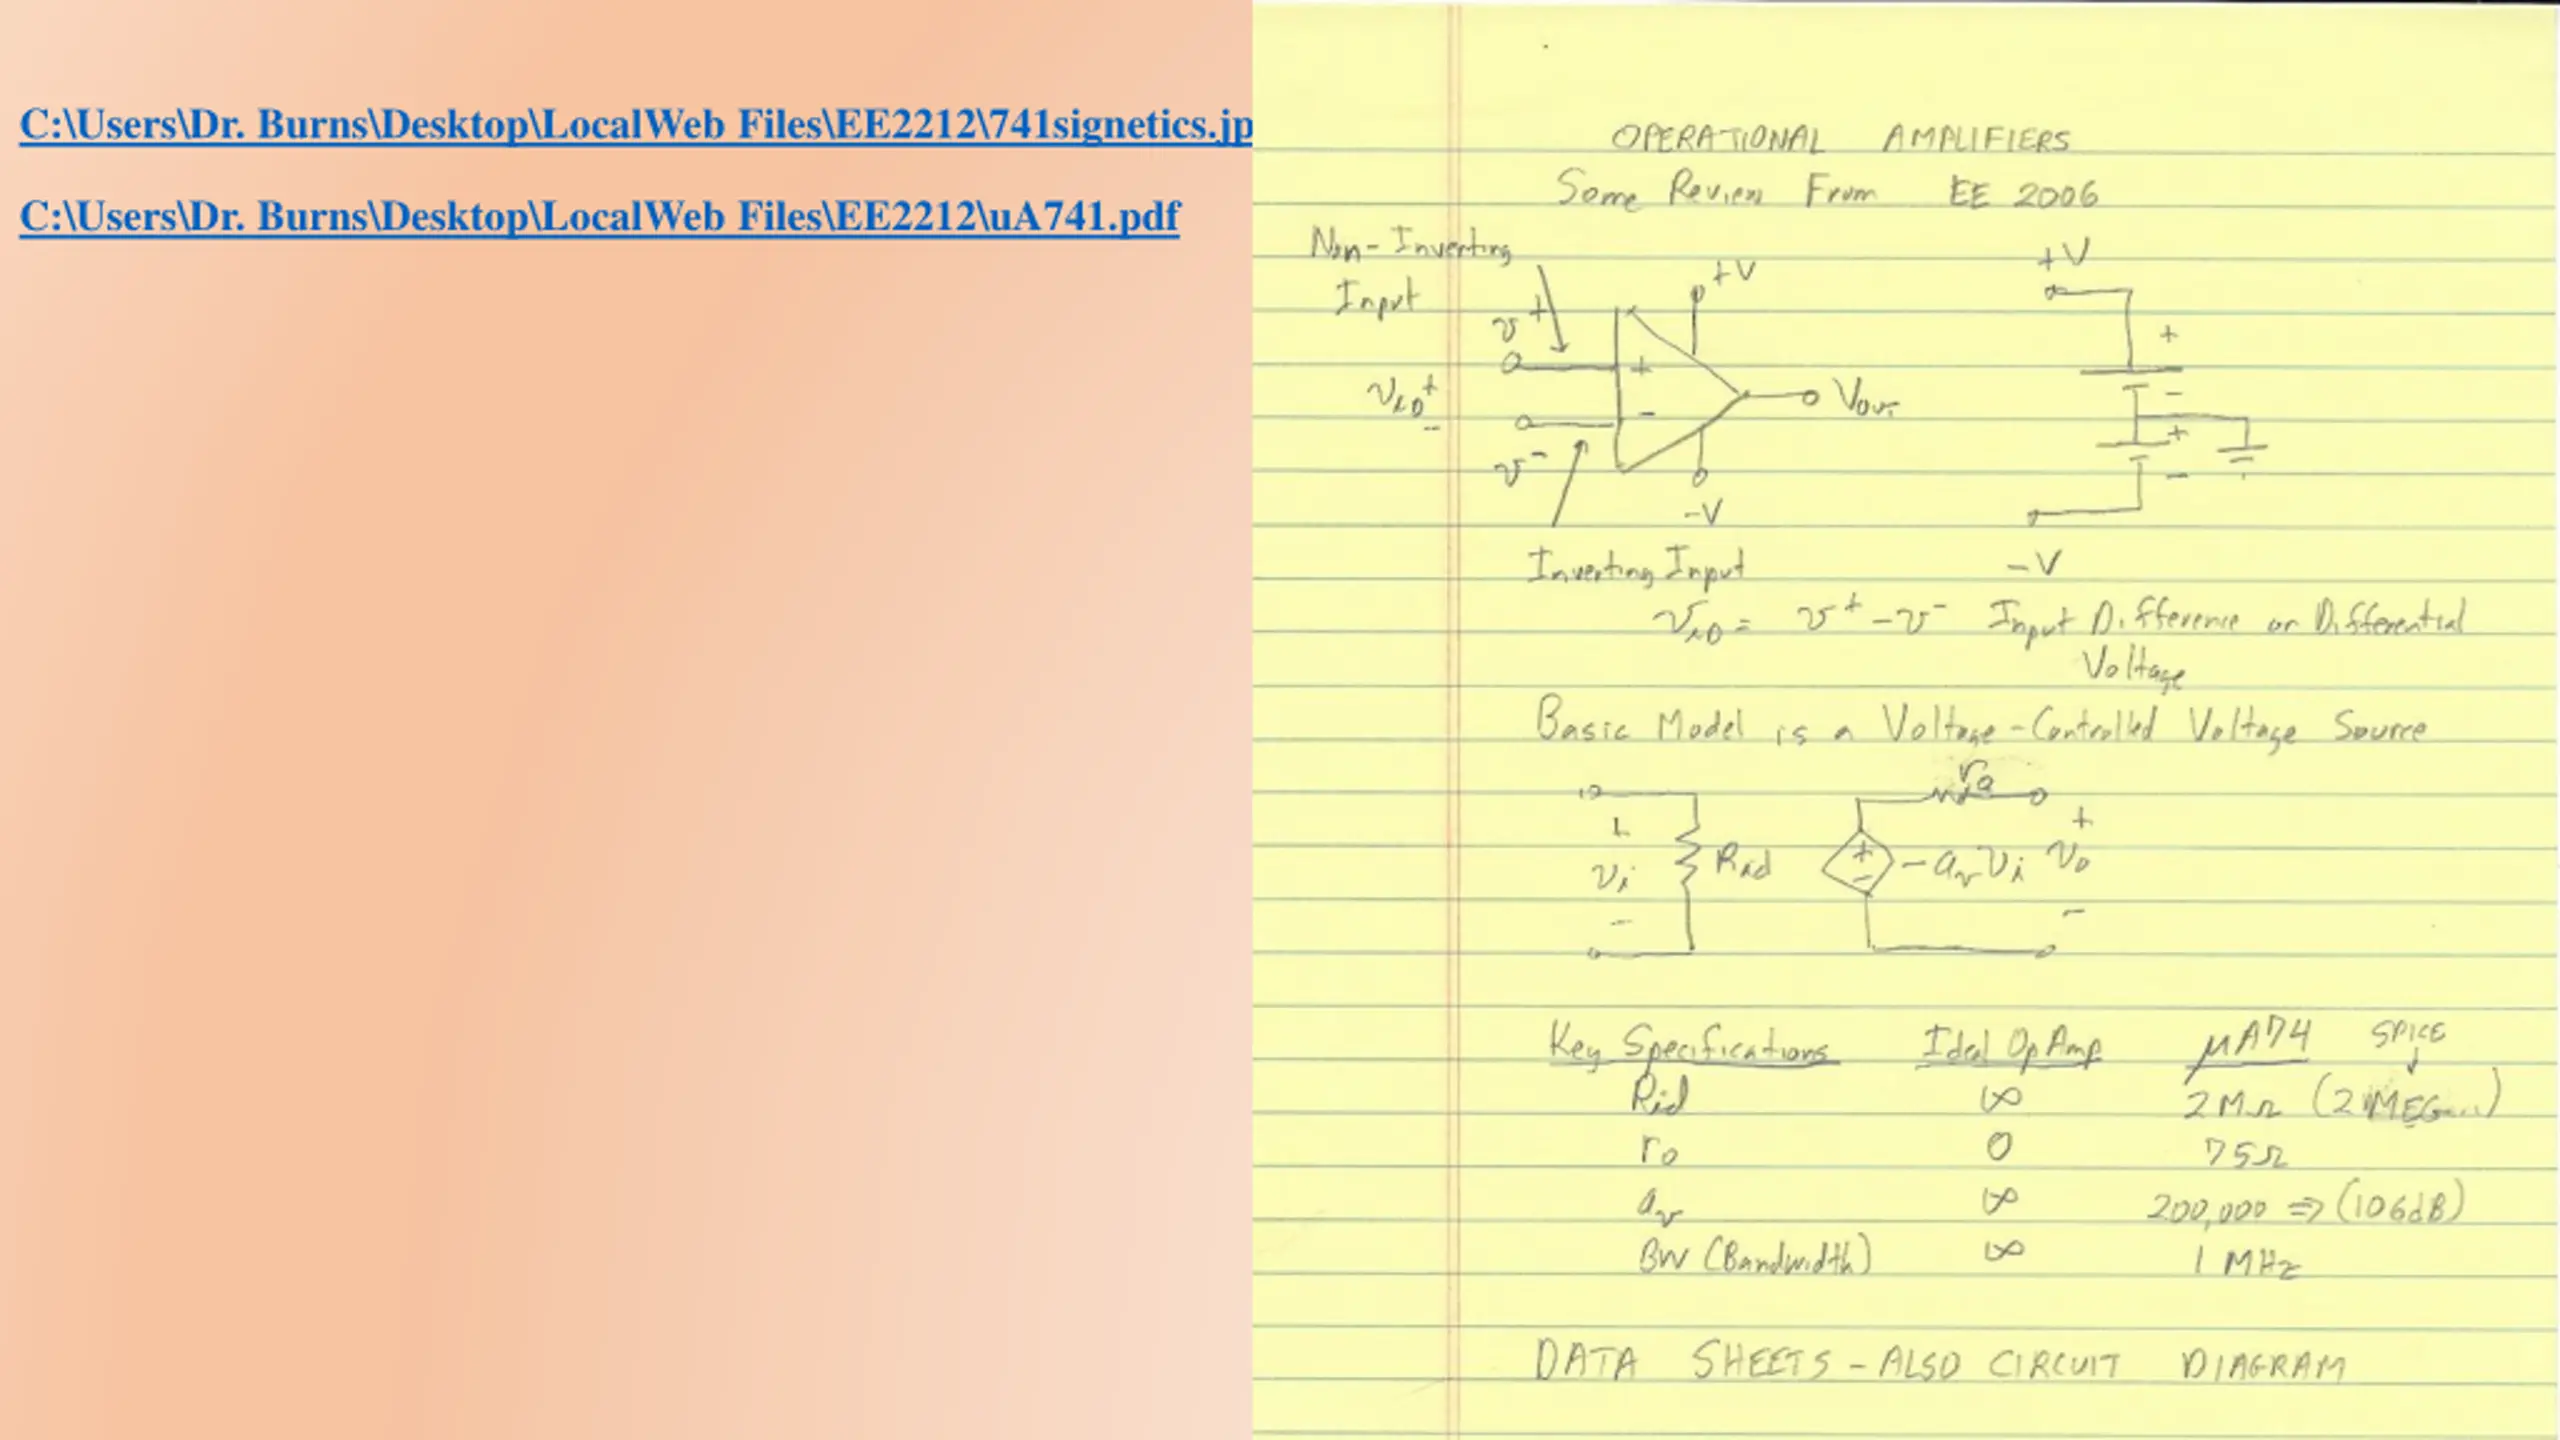 C:\Users\Dr. Burns\Desktop\LocalWeb Files\EE2212\741signetics.jp
C:\Users\Dr. Burns\Desktop\LocalWeb Files\EE2212\uA741.pdf
OPERATIONAL AMPLIFIERS
Some Review From EE 2006
Non-Inverting
Input
+V
+V
v+
+
+
viD +
-
-
-
Vout
+
v-
-
-V
Inverting Input
-V
viD = v+ - v- Input Difference or Differential
Voltage
Basic Model is a Voltage-Controlled Voltage Source
ro
+
+
vi
Rid
+
-
-avvi
vo
-
-
Key Specifications Ideal Op Amp μA74 SPICE
Rid ∞ 2MΩ (2MEG...)
ro 0 75Ω
av ∞ 200,000 ⇒ (106dB)
BW (Bandwidth) ∞ 1 MHz
DATA SHEETS - ALSO CIRCUIT DIAGRAM